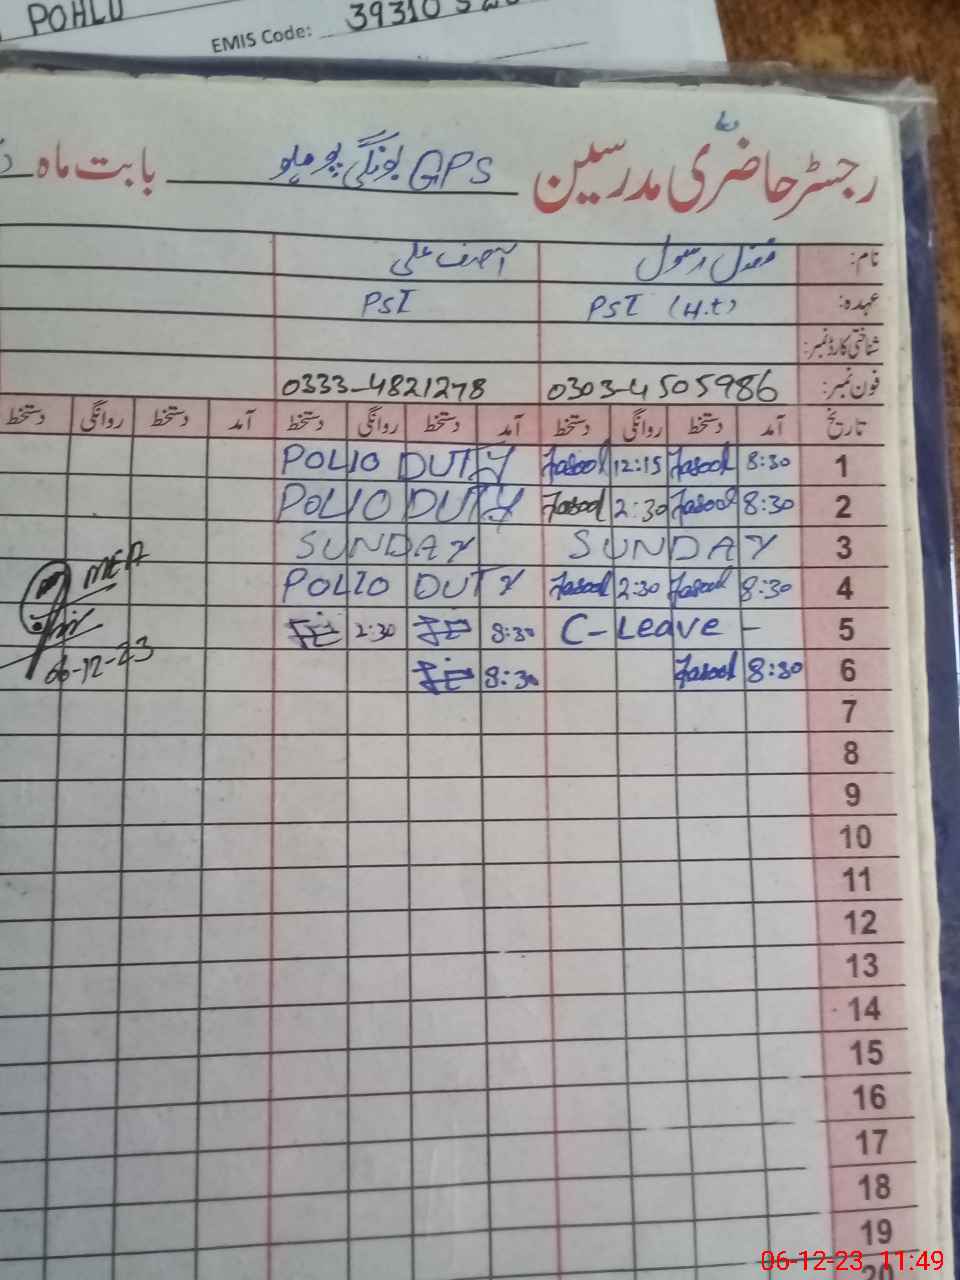 POHLU
EMIS Code: 39310
رجسٹر حاضری مدرسین GPS بونگی پوہلو بابت ماہ
نام: فضل رسول آصف علی
عہدہ: PST (H.t) PST
شناختی کارڈ نمبر:
فون نمبر: 0303-4505986 0333-4821278
تاریخ آمد دستخط روانگی دستخط آمد دستخط روانگی دستخط آمد دستخط روانگی دستخط
1 8:30 Rasool 12:15 Rasool POLIO DUTY
2 8:30 Rasool 2:30 Rasool POLIO DUTY
3 SUNDAY SUNDAY
4 8:30 Rasool 2:30 Rasool POLIO DUTY
5 C-Leave - 8:30 2:30
6 8:30 Rasool 8:30
MEA
06-12-23
7
8
9
10
11
12
13
14
15
16
17
18
19
20
06-12-23 11:49